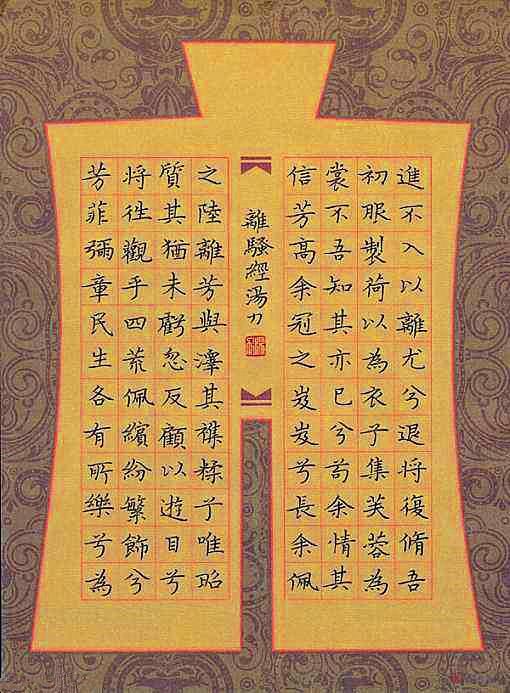 進不入以離尤兮退將復脩吾
初服製荷以為衣子集芙蓉為
裳不吾知其亦已兮苟余情其
信芳高余冠之岌岌兮長余佩
離騷經湯刀
之陸離芳與澤其襍糅兮唯昭
質其猶未虧忽反顧以遊目兮
將往觀乎四荒佩繽紛繁飾兮
芳菲彌章民生各有所樂兮為